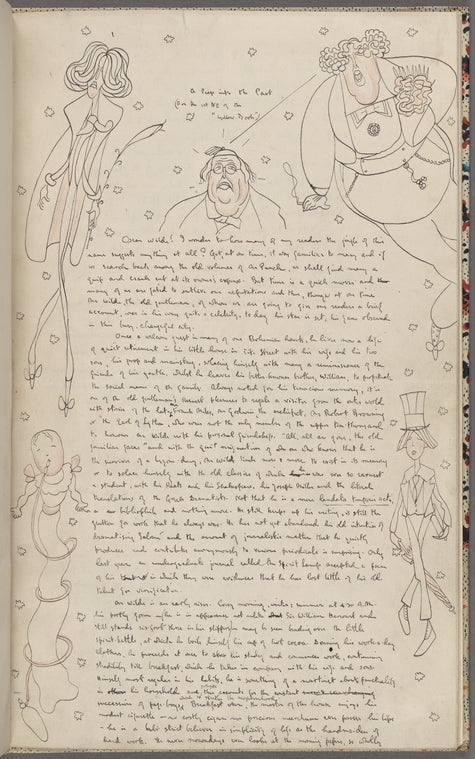 A Peep into the Past
(For the 1st Nº of the
"Yellow Book")
Oscar Wilde! I wonder to how many of my readers the jingle of this
name suggests anything at all? Yet, at one time, it was familiar to many and if
we search back among the old volumes of Mr Punch, we shall find many a
quip and crank cut at its owner's expense. But time is a quick mover and
many of us are fated to outlive our reputations and thus, though at one time
Mr Wilde, the old gentleman, of whom we are going to give our readers a brief
account, was in his way quite a celebrity, to-day his star is set, his fame obscured
in this busy, changeful city.
Once a welcome guest in many of our Bohemian haunts, he lives now a life
of quiet retirement in his little house in Tite Street with his wife and his two
sons, his prop and mainstay, solacing himself with many a reminiscence of the
friends of his youth. Whilst he leaves his better-known brother, William, to perpetuate
the social name of the family. Always noted for his tenacious memory, it is
one of the old gentleman's keenest pleasures to regale a visitor from the outer world
with stories of the late Frank Miles, Mr Godwin the architect, Mr Robert Browning
or the Earl of Lytton, who was not the only member of the upper ten thousand
to honour Mr Wilde with his personal friendship. "All, all are gone, the old
familiar faces" and with the quiet resignation of one who knows that he is
the survivor of a bygone day, Mr Wilde tends more & more to exist in its memory
or to solace himself with the old classics of which he was ever so earnest
a student, with his Keats and his Shakespeare, his Joseph Miller and the literal
translations of the Greek Dramatists. Not that he is a mere laudator temporis acti,
or a bibliophile and nothing more. He still keeps up his writing, is still the
glutton for work that he always was. He has not yet abandoned his old intention of
dramatising Salome and the amount of journalistic matter that he quietly
produces and contributes anonymously to various periodicals is surprising. Only
last year an undergraduate journal called the Spirit Lamp accepted a poem
of his in which there were evidences that he has lost little of his old
talent for versification.
Mr Wilde is an early riser. Every morning, winter & summer, at 4.30 A.M.
his portly form, he is in appearance not unlike Sir William Harcourt and
still stands six foot three in his slippers may be seen bending over the little
spirit kettle, at which he boils himself his cup of hot cocoa. Donning his work-a-day
clothes, he proceeds at once to his study and commences work, continuing
steadily till breakfast, which he takes in company with his wife and sons
Himself most regular in his habits, he is something of a martinet about punctuality
in his household and this accounts for the constant
succession of page-boys. Breakfast over, the master of the house enjoys his
modest cigarette no costly cigar no precious meerschaum ever passes his lips
he is a strict believer in simplicity of life as the handmaiden of
hard work. He never nowadays even looks at the morning papers, so wholly